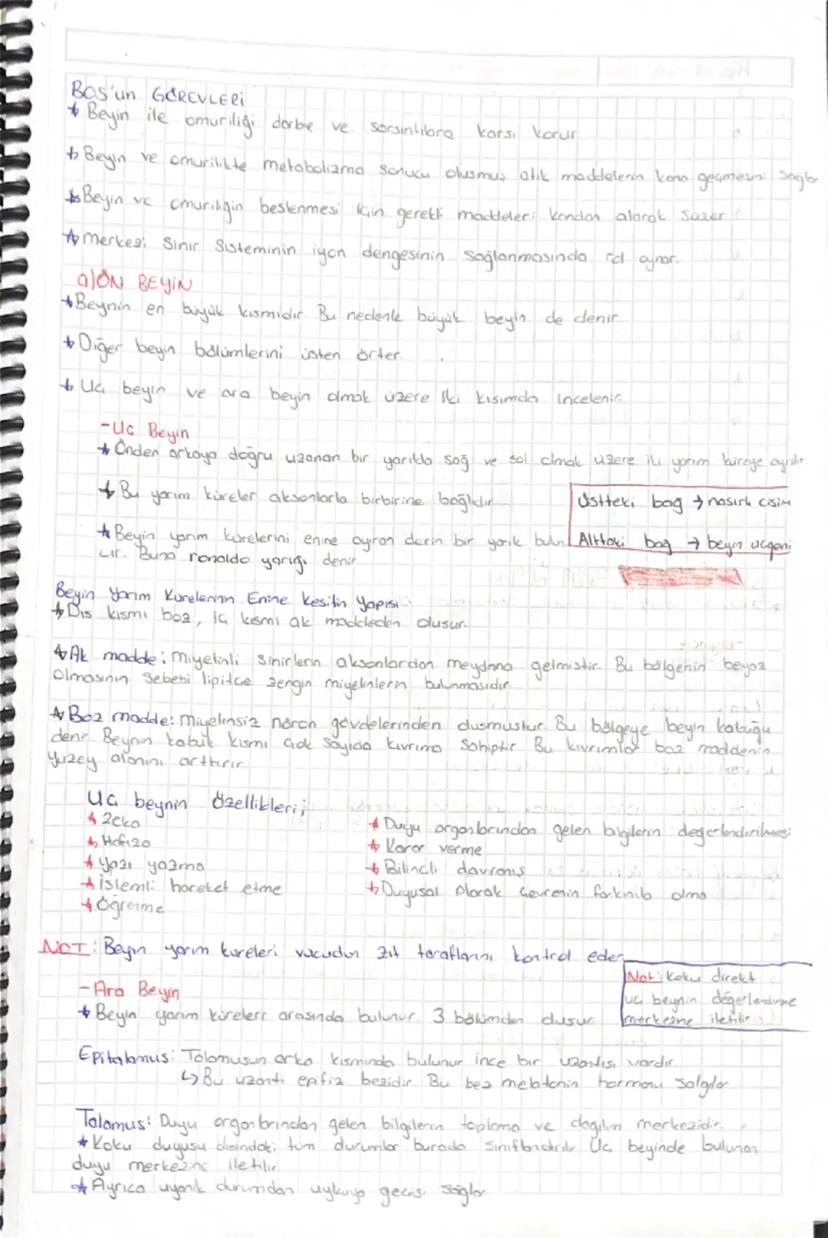 BOS'un GÖREVLERİ
* Beyin ile omuriliği darbe ve sarsıntılara karşı korur
* Beyin ve omurilikte metabolizma sonucu oluşmuş atık maddelerin kana geçmesini sağlar
* Beyin ve omuriliğin beslenmesi için gerekli maddeleri kandan alarak süzer
* Merkezi Sinir Sisteminin iyon dengesinin sağlanmasında rol oynar.
a) ÖN BEYİN
* Beynin en büyük kısmıdır Bu nedenle büyük beyin de denir
* Diğer beyin bölümlerini üsten örter.
* Uç beyin ve ara beyin olmak üzere iki kısımda incelenir.
- Uç Beyin
* Önden arkaya doğru uzanan bir yarıkla sağ ve sol olmak üzere iki yarım küreye ayrılır
* Bu yarım küreler aksonlarla birbirine bağlıdır
Üstteki bağ → nasırlı cisim
* Beyin yarım kürelerini enine ayıran derin bir yarık bulun
Alttaki bağ → beyin üçgeni
ur. Buna ronaldo yarığı denir
Beyin Yarım Kürelerinin Enine Kesitin Yapısı:
* Dış kısmı boz, iç kısmı ak maddeden oluşur.
* Ak madde: miyelinli sinirlerin aksonlardan meydana gelmiştir. Bu bölgenin beyaz
olmasının sebebi lipitce zengin miyelinlerin bulunmasıdır
* Boz madde: miyelinsiz nöron gövdelerinden oluşmuştur. Bu bölgeye beyin kabuğu
denir Beynin kabuk kısmı çok sayıda kıvrıma sahiptir Bu kıvrımlar boz maddenin
yüzey alanını arttırır
Uç beynin özellikleri;
* Zeka
* Duyu organlarından gelen bilgilerin değerlendirilmesi
* Hafıza
* Karar verme
* Yazı yazma
* Bilinçli davranış
* İstemli hareket etme
* Duyusal olarak çevrenin farkında olma
* Öğrenme
NOT: Beyin yarım küreleri vücudun zıt taraflarını kontrol eder
Not: Koku direkt
uç beynin değerlendirme
merkezine iletilir.
- Ara Beyin
* Beyin yarım küreleri arasında bulunur 3 bölümden oluşur
Epitalamus: Talamusun arka kısmında bulunur ince bir uzantısı vardır
↳ Bu uzantı epifiz bezidir Bu bez melatonin hormonu salgılar
Talamus: Duyu organlarından gelen bilgilerin toplama ve dağılım merkezidir.
* Koku duyusu dışındaki tüm durumlar burada sınıflandırılır Uç beyinde bulunan
duyu merkezine iletilir
* Ayrıca uyanık durumdan uykuya geçişi sağlar